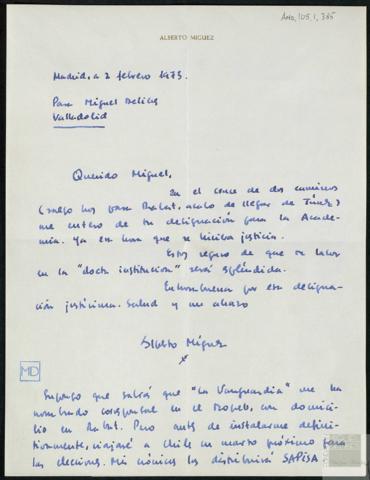 AMD, 105, 1, 365
ALBERTO MIGUEZ
Madrid, a 2 febrero 1973.
Para Miguel Delibes
Valladolid
Querido Miguel,
En el cruce de dos caminos
(salgo hoy para Rabat, acabo de llegar de Túnez)
me entero de tu designación para la Acade-
mia. Ya era hora que se hiciera justicia.
Estoy seguro de que tu labor
en la "docta institución" será espléndida.
Enhorabuena por esa designa-
ción justísima. Salud y un abrazo
Alberto Míguez
MD
Supongo que sabrás que "La Vanguardia" me ha
nombrado corresponsal en el Magreb, con domici-
lio en Rabat. Pero antes de instalarme defini-
tivamente, viajaré a Chile en marzo próximo para
las elecciones. Mis crónicas las distribuirá SAPISA